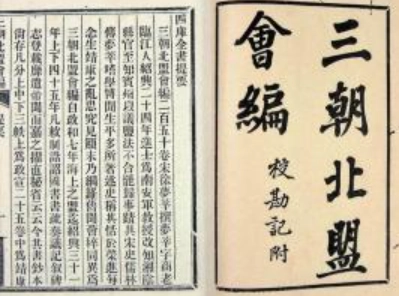 三朝北盟
會編
挍勘記附
四庫全書提要
三朝北盟會編二百五十卷宋徐夢莘撰夢莘字商老
臨江人紹興二十四年進士爲南安軍教授改知湘陰
縣官至知賓州以議鹽法不合罷歸事蹟具宋史儒林
傳夢莘嗜學博聞生平多所著述史稱其恬於榮進每
念生靖康之亂思究見顛末乃網羅舊聞薈稡同異爲
三朝北盟會編自政和七年海上之盟迄紹興三十一
年上下四十五年凡敕制誥詔國書書疏奏議記敘碑
志登載靡遺帝聞而嘉之擢直秘書省云云今其書鈔本
尚存凡分上中下三帙上爲政宣二十五卷中爲靖康
三朝北盟會編 提要